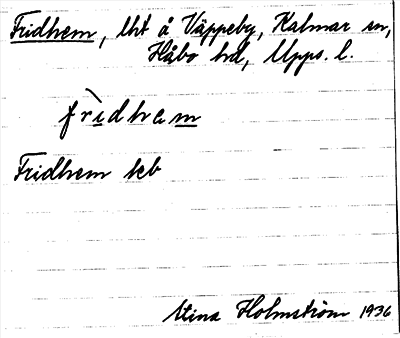 Fridhem, lht å Väppeby, Kalmar sn,
Håbo hd, Upps. l.
frìdhem
Fridhem kb
Stina Holmström 1936